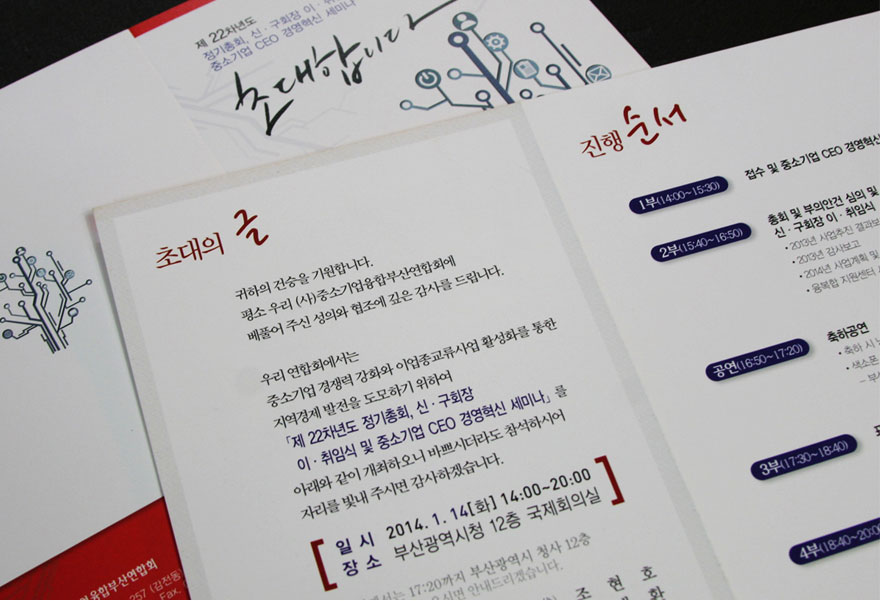 제 22차년도
정기총회, 신 · 구회장 이 · 취
중소기업 CEO 경영혁신 세미나
초대합니다
초대의 글
귀하의 건승을 기원합니다.
평소 우리 (사)중소기업융합부산연합회에
베풀어 주신 성의와 협조에 깊은 감사를 드립니다.
우리 연합회에서는
중소기업 경쟁력 강화와 이업종교류사업 활성화를 통한
지역경제 발전을 도모하기 위하여
「제 22차년도 정기총회, 신 · 구회장
이 · 취임식 및 중소기업 CEO 경영혁신 세미나」를
아래와 같이 개최하오니 바쁘시더라도 참석하시어
자리를 빛내 주시면 감사하겠습니다.
일 시 2014. 1. 14[화] 14:00~20:00
장 소 부산광역시청 12층 국제회의실
에서는 17:20까지 부산광역시 청사 12층
오시면 안내드리겠습니다.
조 현 호
진행 순서
1부(14:00~15:30) 접수 및 중소기업 CEO 경영혁신
2부(15:40~16:50) 총회 및 부의안건 심의 및
신 · 구회장 이 · 취임식
• 2013년 사업추진 결과보
• 2013년 감사보고
• 2014년 사업계획 및
• 융복합 지원센터
공연(16:50~17:20) 축하공연
• 축하 시
• 색소폰
3부(17:30~18:40)
4부(18:40~20:00)
융합부산연합회
257 (감전동)
Fax.